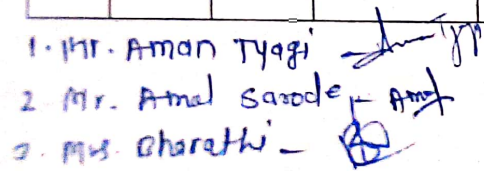 1. Mr. Aman Tyagi -
2 Mr. Amol Sarode -
3. Mrs. Bharathi -